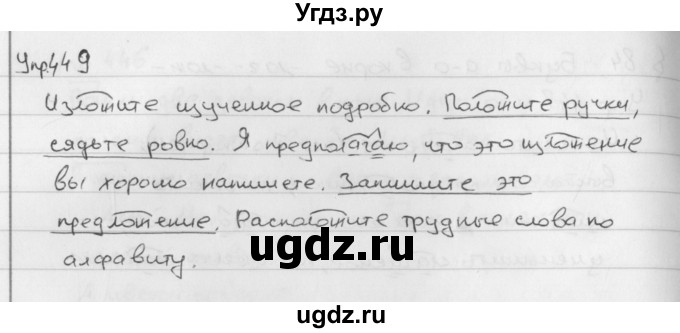 Угдз.ру
Упр.449
Изложите изученное подробно. Положите ручки,
сядьте ровно. Я предполагаю, что это изложение
вы хорошо напишете. Запишите это
предложение. Расположите трудные слова по
алфавиту.
ugdz.ru
ugdz.ru
ugdz.ru